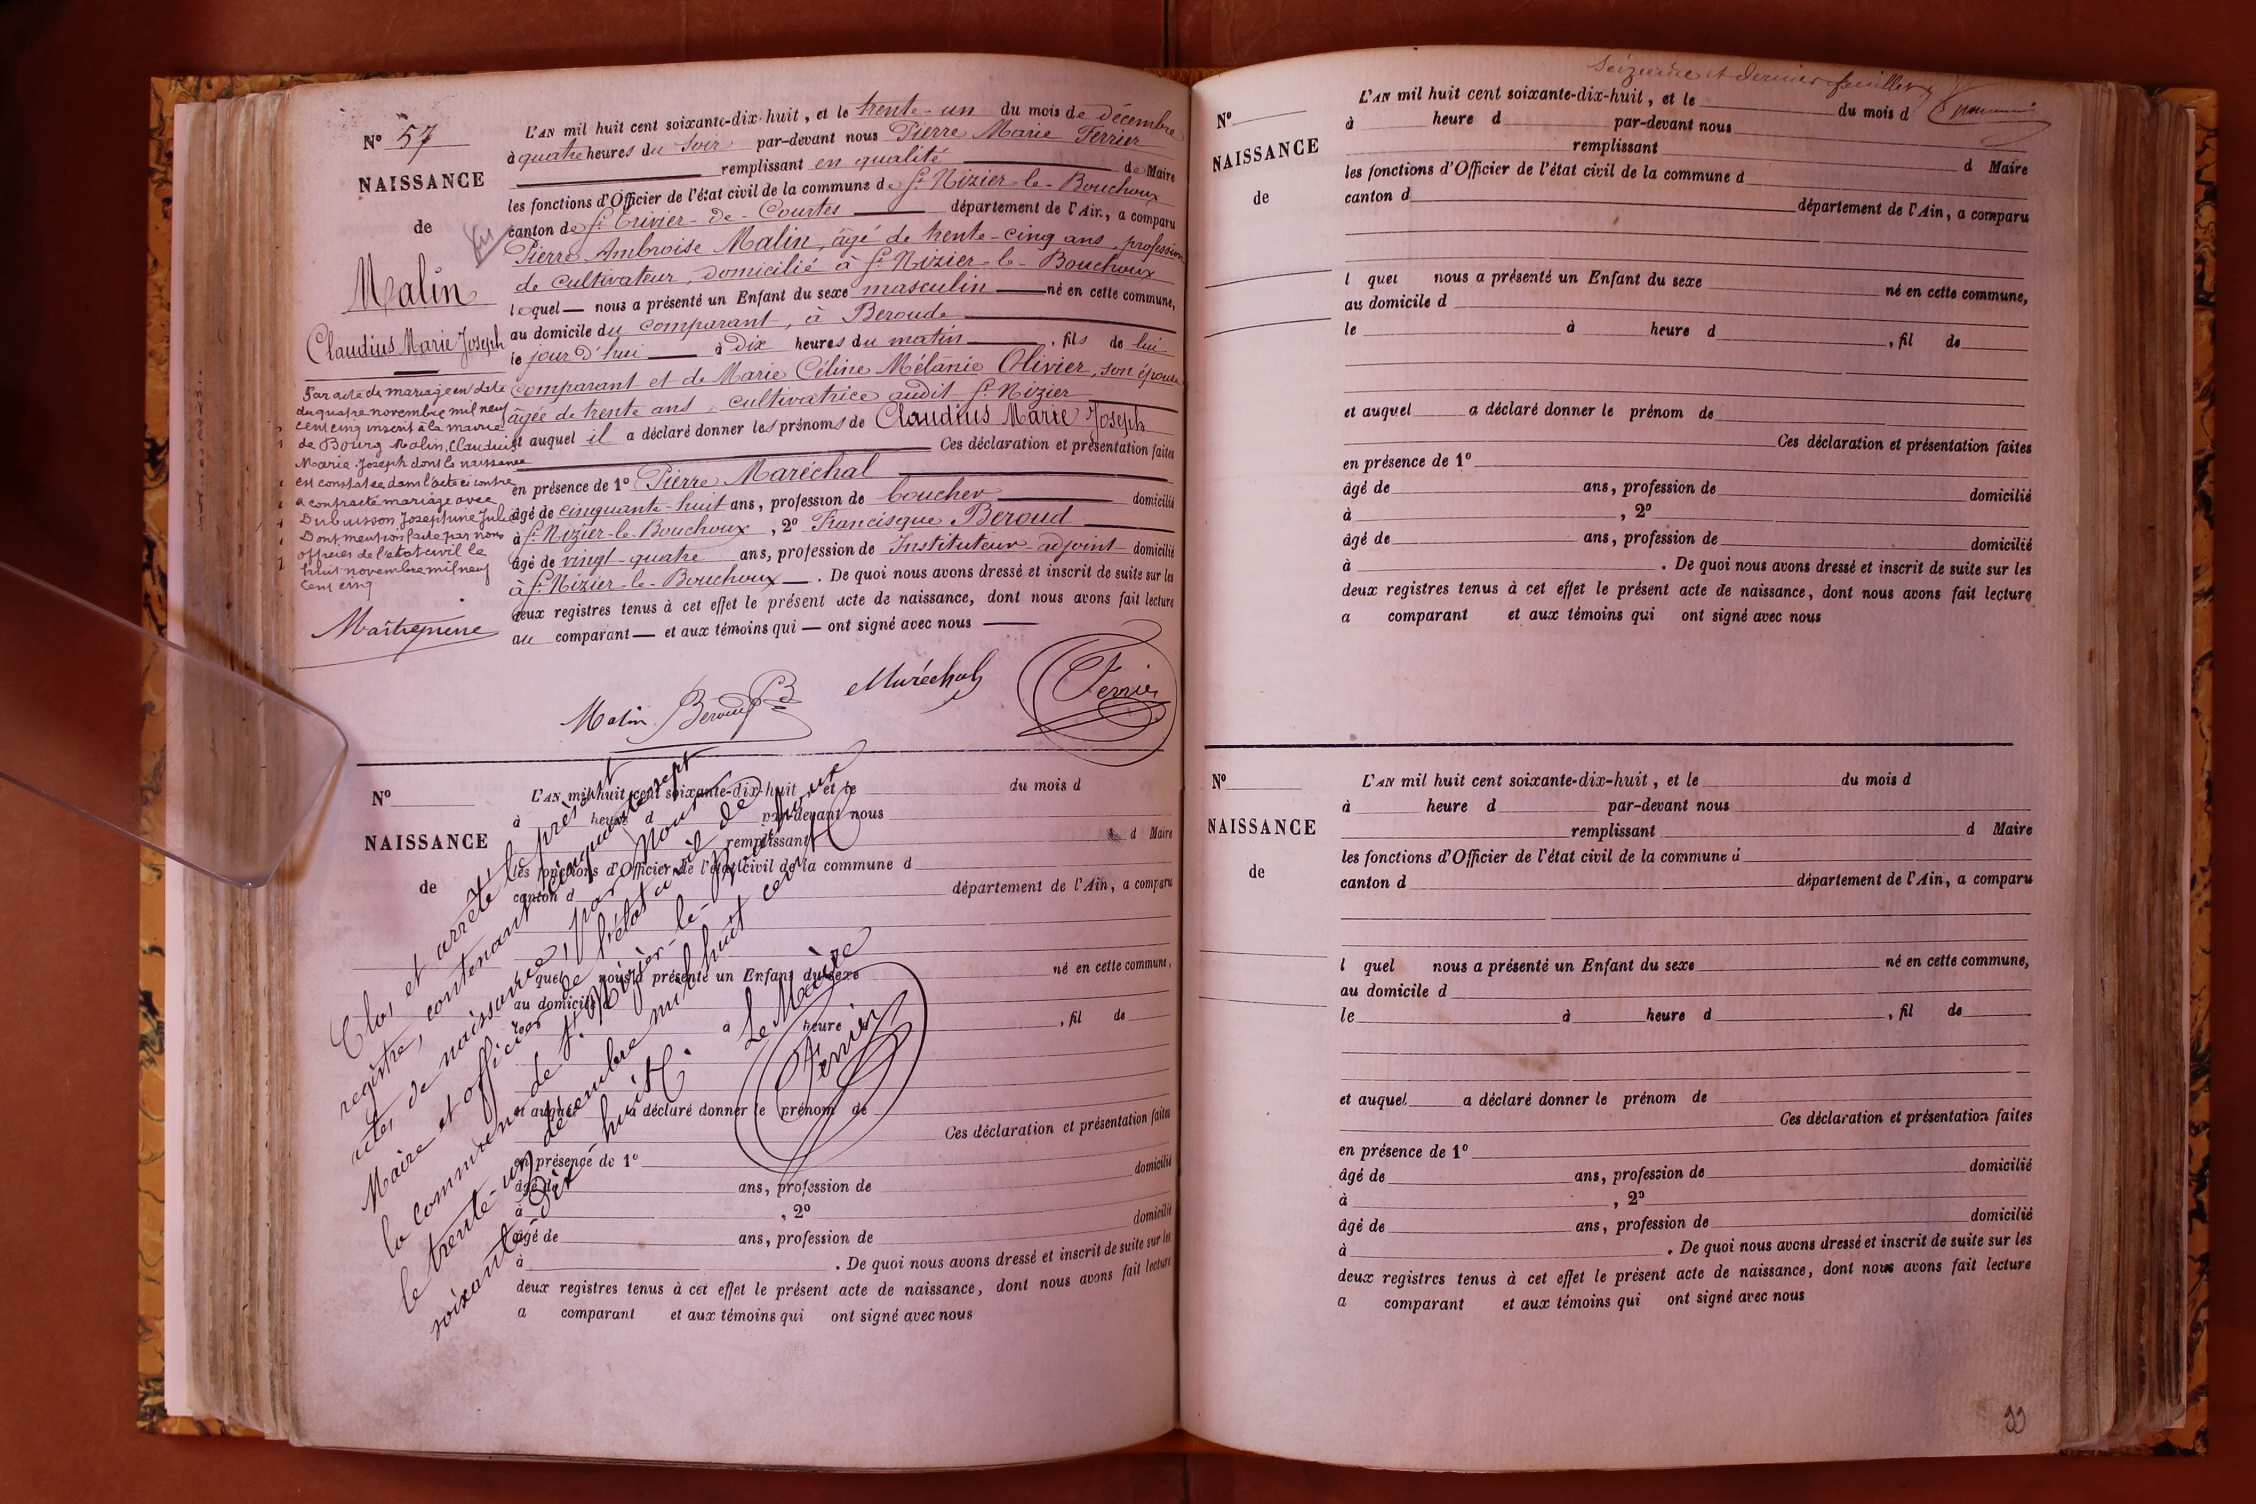 N° 57
NAISSANCE
de
Vu
Malin
Claudius Marie Joseph
Par acte de mariage en date
du quatre novembre mil neuf
cent cinq inscrit à la mairie
de Bourg Malin, Claudius
Marie Joseph dont la naissance
est constatée dans l'acte ci contre
a contracté mariage avec
Dubuisson Joséphine Julie
Dont mention faite par nous
officier de l'état civil le
huit novembre mil neuf
cent cinq
L'AN mil huit cent soixante-dix-huit, et le trente-un du mois de décembre
à quatre heures du soir par-devant nous Pierre Marie Ferrier
remplissant en qualité de Maire
les fonctions d'Officier de l'état civil de la commune de St Nizier-le-Bouchoux
canton de St Trivier-de-Courtes département de l'Ain, a comparu
Pierre Ambroise Malin, âgé de trente-cinq ans, profession
de cultivateur, domicilié à St Nizier-le-Bouchoux
lequel nous a présenté un Enfant du sexe masculin né en cette commune,
au domicile du comparant, à Beroude
le jour d'hui à dix heures du matin, fils de lui
comparant et de Marie Céline Mélanie Olivier, son épouse
âgée de trente ans, cultivatrice audit St Nizier
et auquel il a déclaré donner les prénoms de Claudius Marie Joseph
Ces déclaration et présentation faites
en présence de 1° Pierre Maréchal
âgé de cinquante-huit ans, profession de boucher domicilié
à St Nizier-le-Bouchoux, 2° Francisque Beroud
âgé de vingt-quatre ans, profession de Instituteur-adjoint domicilié
à St Nizier-le-Bouchoux. De quoi nous avons dressé et inscrit de suite sur les
deux registres tenus à cet effet le présent acte de naissance, dont nous avons fait lecture
au comparant et aux témoins qui ont signé avec nous
Malin Beroud Maréchal Ferrier
N°
NAISSANCE
de
L'AN mil huit cent soixante-dix-huit, et le du mois d
à heure d par-devant nous
remplissant d Maire
les fonctions d'Officier de l'état civil de la commune d
canton d département de l'Ain, a comparu
quel nous a présenté un Enfant du sexe né en cette commune,
au domicile d
à heure, fil de
et auquel a déclaré donner le prénom de
Ces déclaration et présentation faites
en présence de 1°
âgé de ans, profession de domicilié
à, 2°
âgé de ans, profession de domicilié
à. De quoi nous avons dressé et inscrit de suite sur les
deux registres tenus à cet effet le présent acte de naissance, dont nous avons fait lecture
a comparant et aux témoins qui ont signé avec nous
Clos et arrêté le présent
registre, contenant cinquante sept
actes de naissance, par nous
Maire et officier de l'état civil de
la commune de St Nizier-le-Bouchoux
le trente-un décembre mil huit cent
soixante dix huit.
Le Maire
Ferrier
Seizième et dernier feuillet
N°
NAISSANCE
de
L'AN mil huit cent soixante-dix-huit, et le du mois d
à heure d par-devant nous
remplissant d Maire
les fonctions d'Officier de l'état civil de la commune d
canton d département de l'Ain, a comparu
l quel nous a présenté un Enfant du sexe né en cette commune,
au domicile d
le à heure d, fil de
et auquel a déclaré donner le prénom de
Ces déclaration et présentation faites
en présence de 1°
âgé de ans, profession de domicilié
à, 2°
âgé de ans, profession de domicilié
à. De quoi nous avons dressé et inscrit de suite sur les
deux registres tenus à cet effet le présent acte de naissance, dont nous avons fait lecture
a comparant et aux témoins qui ont signé avec nous
N°
NAISSANCE
de
L'AN mil huit cent soixante-dix-huit, et le du mois d
à heure d par-devant nous
remplissant d Maire
les fonctions d'Officier de l'état civil de la commune d
canton d département de l'Ain, a comparu
l quel nous a présenté un Enfant du sexe né en cette commune,
au domicile d
le à heure d, fil de
et auquel a déclaré donner le prénom de
Ces déclaration et présentation faites
en présence de 1°
âgé de ans, profession de domicilié
à, 2°
âgé de ans, profession de domicilié
à. De quoi nous avons dressé et inscrit de suite sur les
deux registres tenus à cet effet le présent acte de naissance, dont nous avons fait lecture
a comparant et aux témoins qui ont signé avec nous